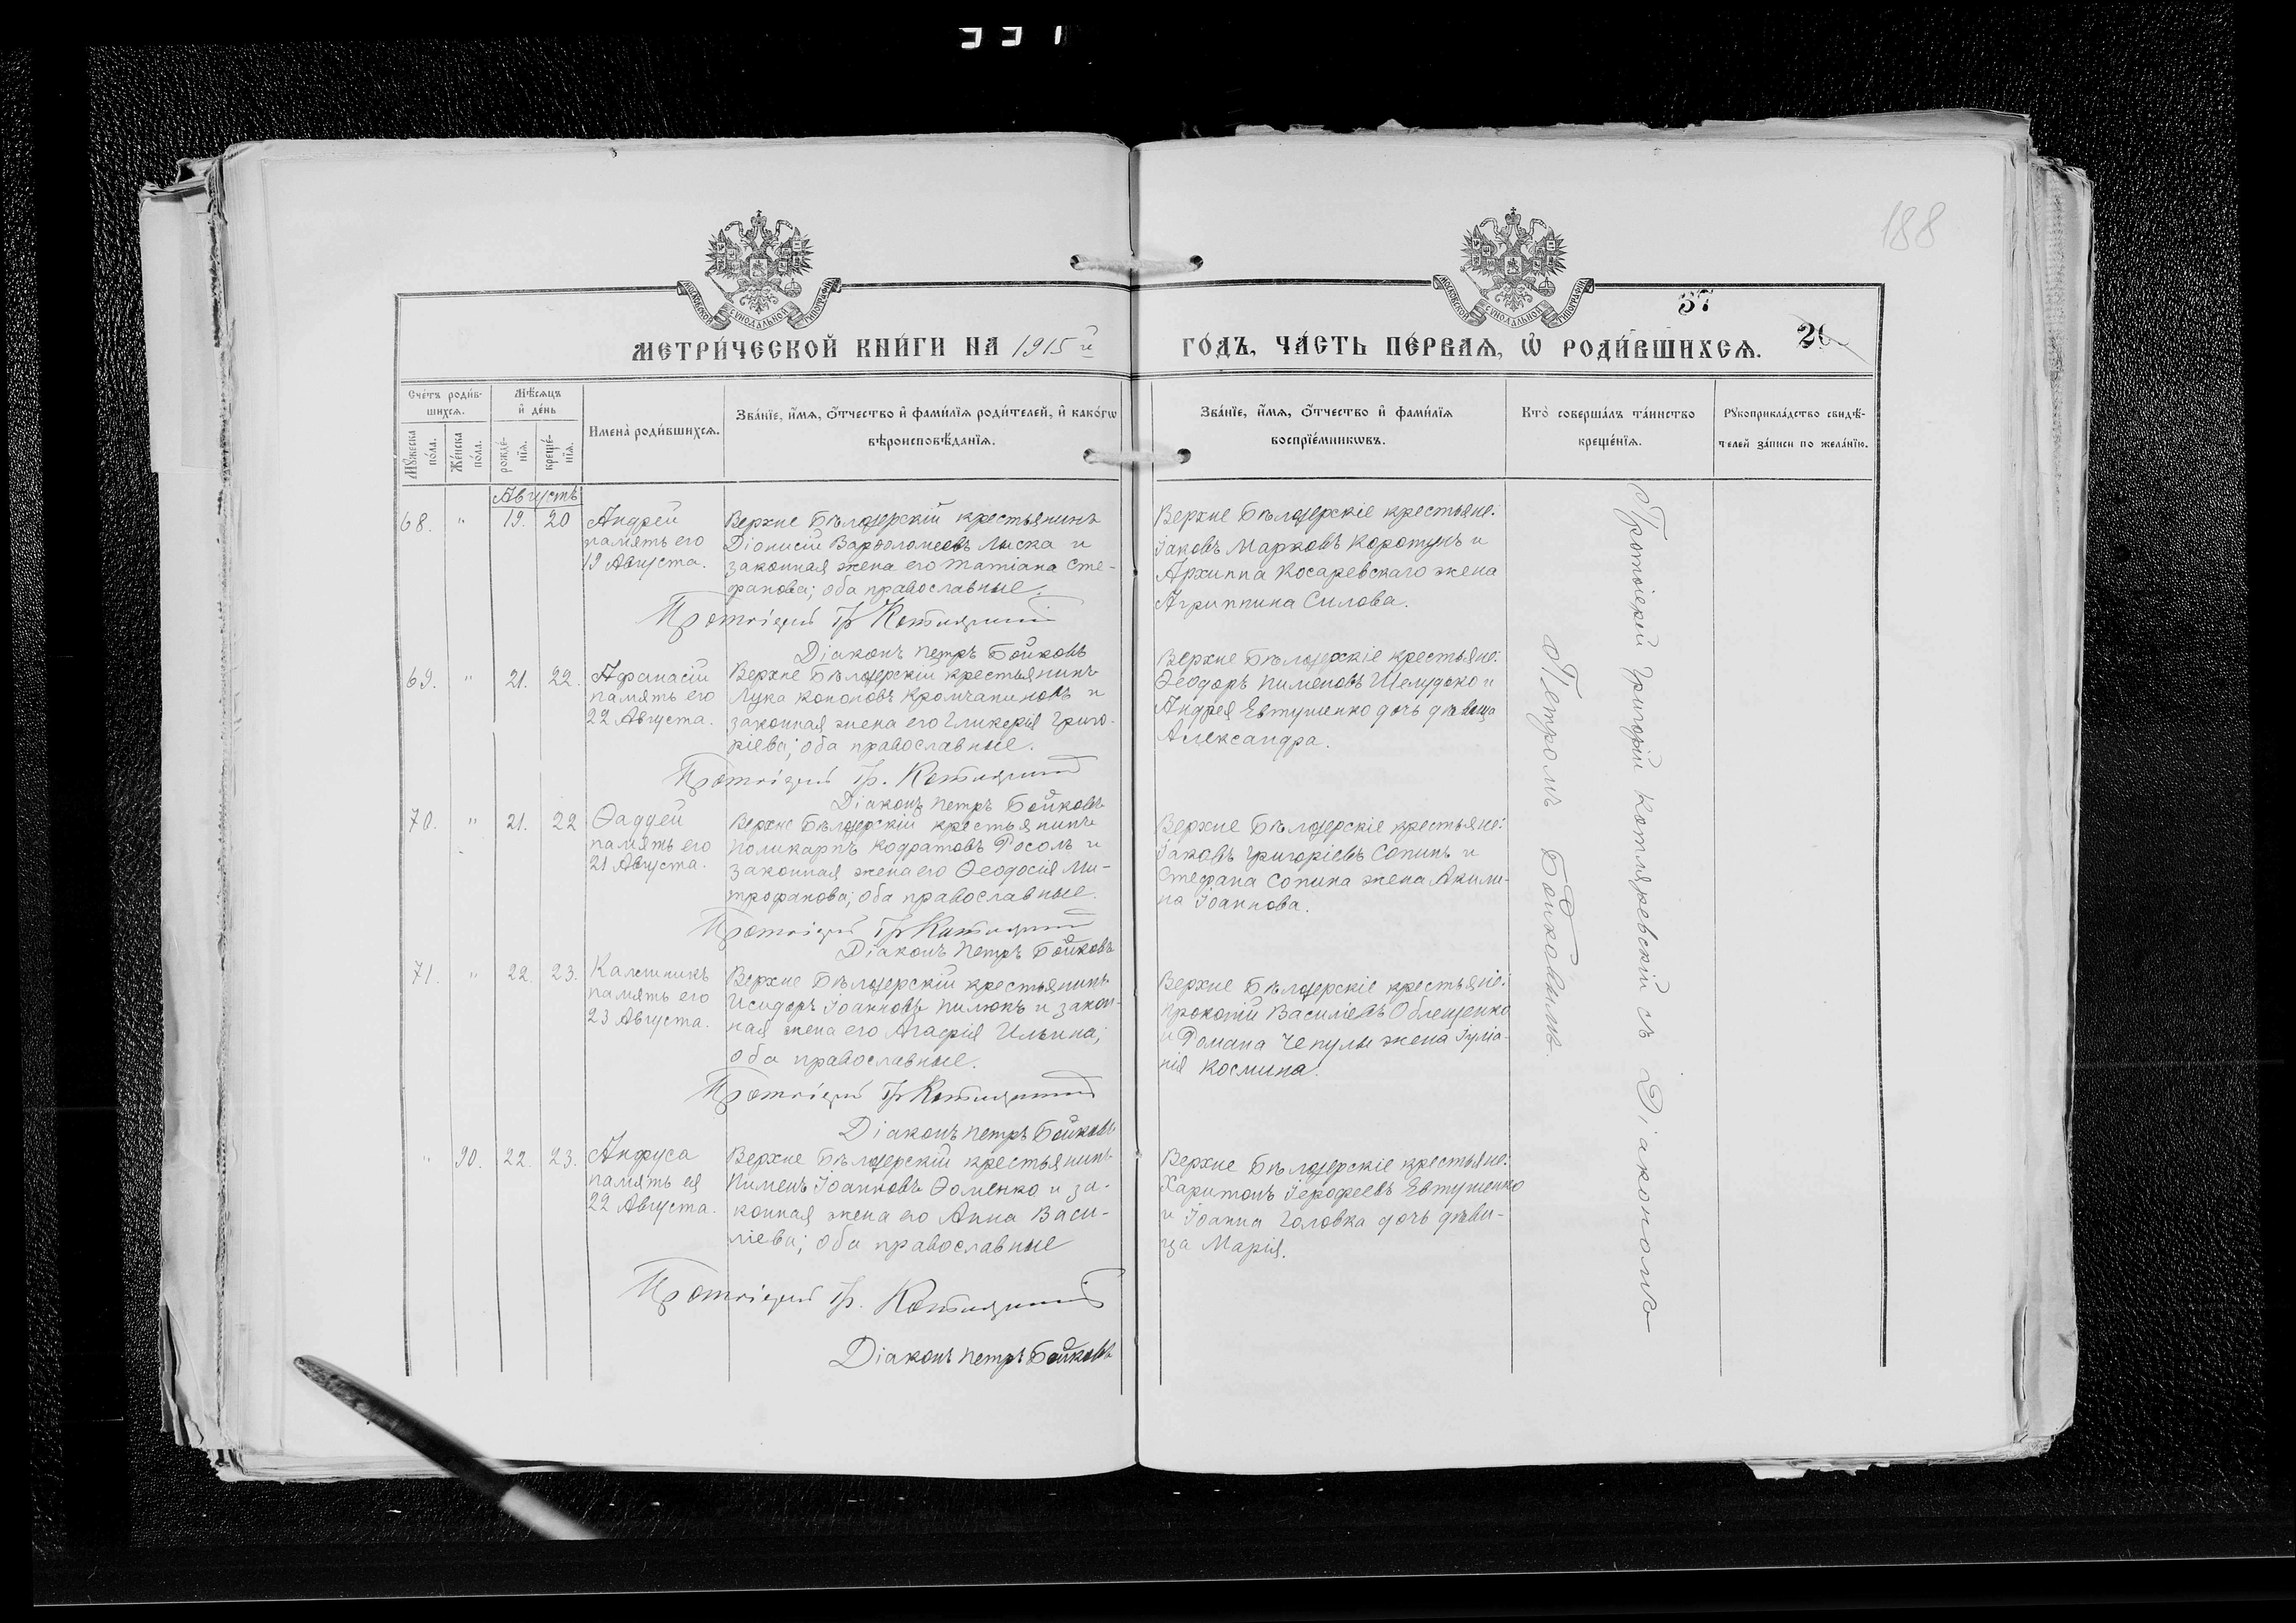 188
37
20
МЕТРИ́ЧЕСКОЙ КНИ́ГИ НА 1915 й
ГО́ДЪ, ЧА́СТЬ ПЕ́РВАЯ, Ѡ РОДИ́ВШИХСЯ.
Сче́тъ роди́в-
шихся.
Му́жеска
по́ла.
Же́нска
по́ла.
Мѣ́сяцъ
и де́нь
рожде́-
нїя.
креще́-
нїя.
Имена̀ роди́вшихся.
Зва́нїе, и́мя, о́тчество и фами́лїя роди́телей, и како́гѡ
вѣроисповѣ́данїя.
Зва́нїе, и́мя, о́тчество и фами́лїя
воспрїе́мникѡвъ.
Кто̀ соверша́лъ та́инство
креще́нїя.
Рукоприкла́дство свидѣ́-
телей за́писи по жела́нїю.
Августъ
68. " 19. 20
Андрей
память его
19 Августа.
Верхне Бѣлозерскій крестьянинъ
Діонисій Варѳоломеевъ Лыска и
законная жена его Татіана Сте-
фанова; оба православные.
Протоіерей Гр Котляревскій
Діаконъ Петръ Бойковъ
Верхне Бѣлозерскіе крестьяне:
Іаковъ Марковъ Коротунъ и
Архиппа Косаревскаго жена
Агриппина Силова.
69. " 21. 22.
Афанасій
память его
22 Августа.
Верхне Бѣлозерскій крестьянинъ
Лука Кононовъ и
законная жена его Гликерія Григо-
ріева; оба православные.
Протоіерей Гр. Котляревскій
Діаконъ Петръ Бойковъ
Верхне Бѣлозерскіе крестьяне:
Ѳеодоръ Пименовъ Шелудько и
Андрея Евтушенко дочь дѣвица
Александра.
70. " 21. 22
Ѳаддей
память его
21 Августа.
Верхне Бѣлозерскій крестьянинъ
Поликарпъ Кодратовъ Росолъ и
законная жена его Ѳеодосія Ми-
трофанова; оба православные.
Протоіерей Гр Котляревскій
Діаконъ Петръ Бойковъ
Верхне Бѣлозерскіе крестьяне:
Іаковъ Григоріевъ Сопинъ и
Стефана Сопина жена Акили-
на Іоаннова.
71. " 22. 23.
Каллиникъ
память его
23 Августа.
Верхне Бѣлозерскій крестьянинъ
Исидоръ Іоанновъ Пилюкъ и закон-
ная жена его Агафія Ильина;
оба православные.
Протоіерей Гр Котляревскій
Діаконъ Петръ Бойковъ
Верхне Бѣлозерскіе крестьяне:
Прокопій Василіевъ Облещенко
и Романа Чепулы жена Іуліа-
нія Космина.
" 90. 22. 23.
Анфуса
память ея
22 Августа.
Верхне Бѣлозерскій крестьянинъ
Пименъ Іоанновъ Ѳоменко и за-
конная жена его Анна Васи-
ліева; оба православные
Протоіерей Гр. Котляревскій
Діаконъ Петръ Бойковъ
Верхне Бѣлозерскіе крестьяне:
Харитонъ Іерофеевъ Евтушенко
и Іоанна Головка дочь дѣви-
ца Марія.
Протоіерей Григорій Котляревскій съ Діакономъ
Петромъ Бойковымъ.